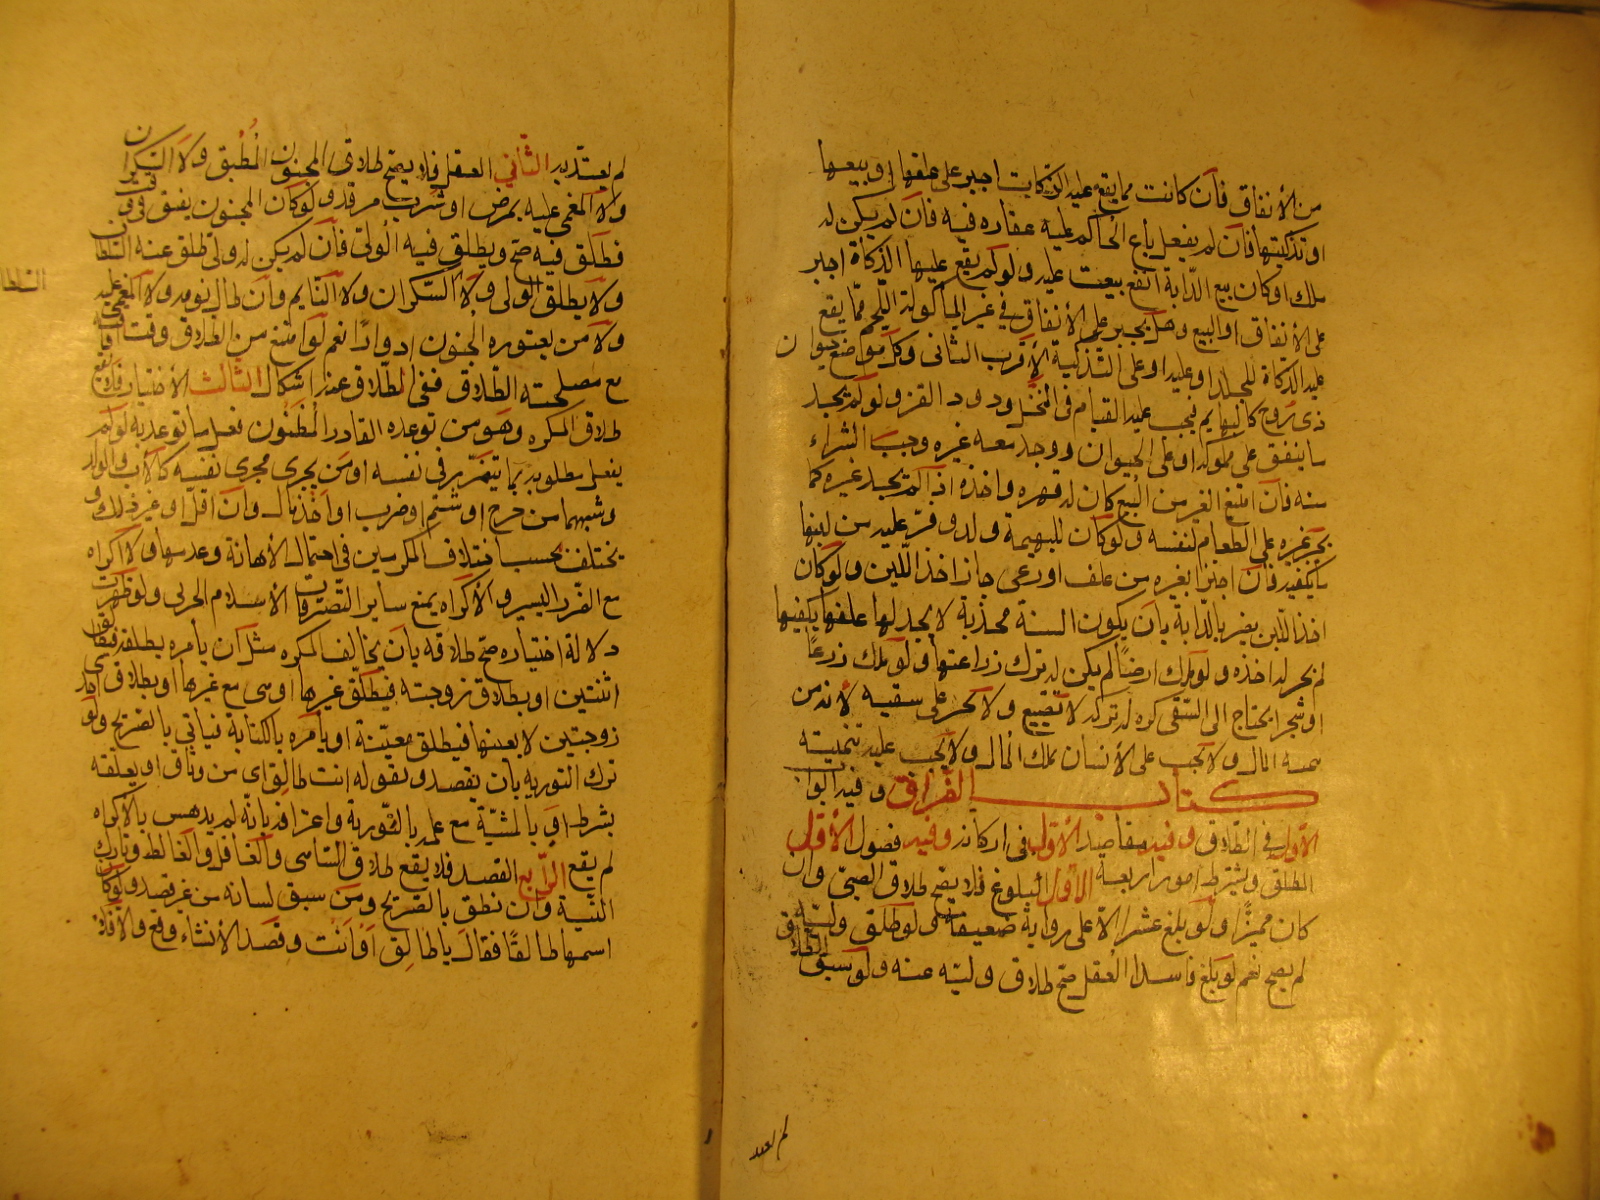 من الأنفاق فأن كانت مما يقع عليه الزكاة اجبر على علفها او بيعها
او تذكيتها فأن لم يفعل باع الحاكم عليه عقاره فيه فان لم يكن له
ملك او كان بيع الدّابة انفع بيعت عليه ولو لم يقع عليها الذكاة اجبر
على الأنفاق او البيع وهل يجبر على الأنفاق في غير المأكولة اللحم ممّا يقع
عليه الذكاة للجلد او عليه او على التذكية الأقرب الثاني وكل حيوان
ذي روح كالبهايم يجب عليه القيام في النحل ودود القز ولو لم يجد
ما ينفق على مملوكه او على الحيوان ووجد معه غيره وجب الشراء
منه فأن امتنع الغير من البيع كان له قهره واخذه اذا لم يجد غيره كما
يجبر غيره على الطعام لنفسه ولو كان للبهيمة ولد وفّر عليه من لبنها
ما يكفيه فأن اجتزأ بغيره من علف او رعى جاز اخذ اللّبن ولو كان
اخذ اللبن يضر بالدّابة بان يكون السنة مجدبة لا يجد لها علفها يكفيها
لم يجز له اخذه ولو ملك ارضاً لم يكن له ترك زراعتها ولو ملك زرعاً
او شجرا يحتاج الى السّقى كره له تركه لا تضييع ولا يجبر على سقيه لأنه من
تنمية المال ولا يجب على الأنسان تملك المال ولا يجب عليه تنميته
كتاب الفراق وفيه ابواب
الأول في الطّلاق وفيه مقاصد الأول في اركانه وفيه فصول الأول
المطلق ويشترط امور اربعة الأول البلوغ فلا يصح طلاق الصبي وان
كان مميزًا ولو بلغ عشرا الاّ على رواية ضعيفة ولو طلق وليّه
لم يصح نعم لو بلغ فاسد العقل صح طلاق وليّه عنه ولو سبق
لم يعتد
لم يعتد به الثاني العقل فلا يصح طلاق المجنون المُطبق ولا السّكران
ولا المغمى عليه بمرض او شرب مرقد ولو كان المجنون يفيق في وقت
فطلّق فيه صح ويطلق فيه الولىّ فان لم يكن له ولى طلق عنه السّلطان
السلطا
ولا يطلق الولى ولا السّكران ولا النّايم وان طال نومه ولا المغمى عليه
ولا من يعتوره الجنون ادوارًا نعم لو امتنع من الطلاق وقت افاقته
مع مصلحته الطلاق ففي الطّلاق عنه اشكال الثالث الأختيار فلا يقع
طلاق المكره وهو من توعده القادر المظنون فعل ما توعد به لو لم
يفعل مطلوبه بما يتضرّر به في نفسه او من يجرى مجرى نفسه كالأب والولد
وشبههما من جرح او شتم او ضرب او اخذ مال وان اقل او غير ذلك و
يختلف بحسب اختلاف المكرهين في احتمال الأهانة وعدمها ولا اكراه
مع الضرر اليسير والأكراه يمنع ساير التصرّفات الأ اسلام الحربي ولو ظهرت
دلالة اختياره صح طلاقه بأن يخالف المكره مثل ان يأمره بطلقة فيطلق
اثنتين او بطلاق زوجته فيطلّق غيرها او هي مع غيرها او بطلاق احدى
زوجتين لا بعينها فيطلق معيّنة او يأمره بالكناية فيأتي بالصّريح ولو
ترك التورية بان يقصد ولقوله انت طالق اى من وثاق او يعلقه
بشرط اى بالمشيّة مع علمه بالتّورية واعترافه بأنّه لم يدهش بالأكراه
لم يقع الرّابع القصد فلا يقع طلاق السّاهى والغافل والغالط وتارك
النّية وان نطق بالصّريح ومن سبق لسانه من غير قصد ولو كان
اسمها طالقًا فقال يا طالق او انت وقصد الأنشاء وقع والّا فلا